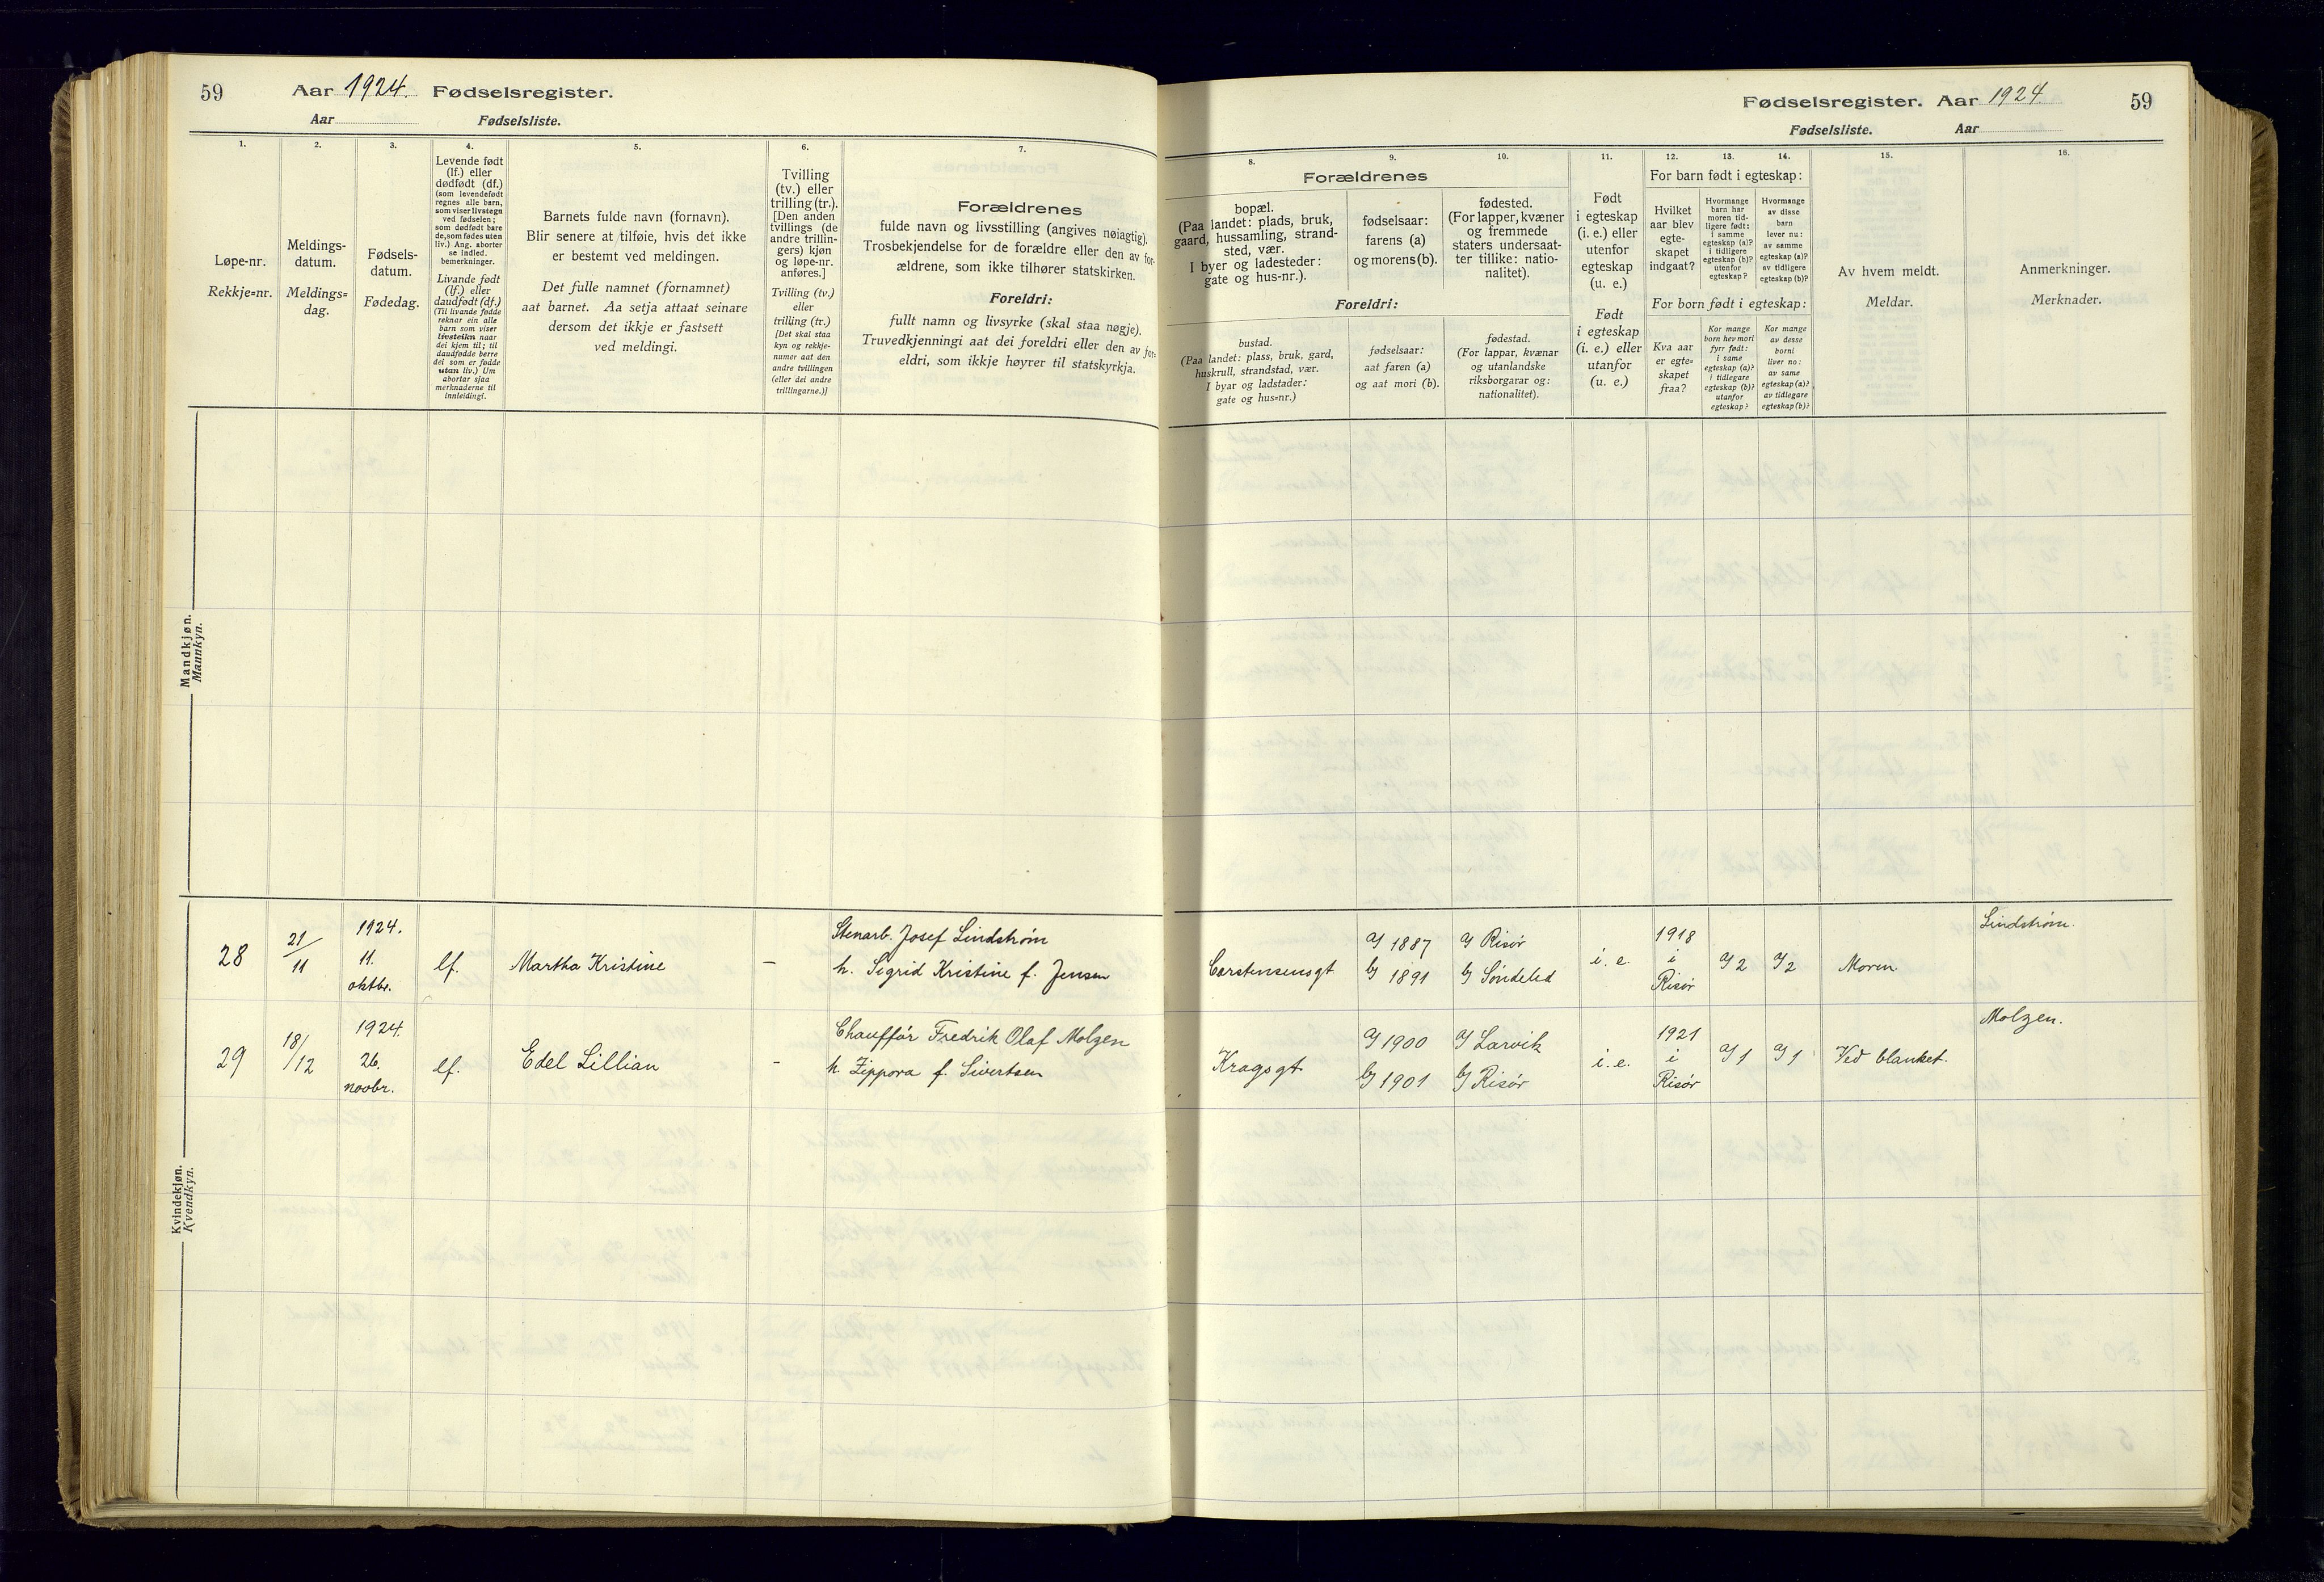 59 Aar 1924. Fødselsregister.
Aar Fødselsliste.
1.
Løpe-nr.
Rekkje=nr.
2.
Meldings-
datum.
Meldings=
dag.
3.
Fødsels-
datum.
Fødedag.
4.
Levende født
(lf.) eller
dødfødt (df.)
(som levendefødt
regnes alle barn,
som viser livstegn
ved fødselen;
som dødfødt bare
de, som fødes uten
liv.) Ang. aborter
se indled.
bemerkninger.
Livande født
(lf.) eller
daudfødt (df.)
(Til livande fødde
reknar ein alle
barn som viser
livsteikn naar
dei kjem til; til
daudfødde berre
dei som er fødde
utan liv.) Um
abortar sjaa
merknaderne til
innleidingi.
5.
Barnets fulde navn (fornavn).
Blir senere at tilføie, hvis det ikke
er bestemt ved meldingen.
Det fulle namnet (fornamnet)
aat barnet. Aa setja attaat seinare
dersom det ikkje er fastsett
ved meldingi.
6.
Tvilling
(tv.) eller
trilling (tr.).
[Den anden
tvillings (de
andre trillin-
gers) kjøn
og løpe-nr.
anføres.]
Tvilling (tv.)
eller
trilling (tr.)
[Det skal staa
kyn og rekkje-
numer aat den
andre tvillingen
(eller dei andre
trillingarne.)]
7.
Forældrenes
fulde navn og livsstilling (angives nøiagtig).
Trosbekjendelse for de forældre eller den av for-
ældrene, som ikke tilhører statskirken.
Foreldri:
fullt namn og livsyrke (skal staa nøgje).
Truvedkjenningi aat dei foreldri eller den av for-
eldri, som ikkje høyrer til statskyrkja.
Mandkjøn.
Mannkyn.
28
21/11
1924.
11.
oktbr.
lf.
Martha Kristine
—
Stenarb. Josef Lindstrøm
h. Sigrid Kristine f. Jensen
29
18/12
1924.
26.
novbr.
lf.
Edel Lillian
-
Chauffør Fredrik Olaf Molzen
h. Zippora f. Sivertsen
Kvindekjøn.
Kvendkyn.
Fødselsregister. Aar 1924 59
Fødselsliste. Aar
8.
Forældrenes
bopæl.
(Paa landet: plads, bruk,
gaard, hussamling, strand-
sted, vær.
I byer og ladesteder:
gate og hus-nr.).
Foreldri:
bustad.
(Paa landet: plass, bruk, gard,
huskrull, strandstad, vær.
I byar og ladstader:
gate og hus=nr.)
9.
fødselsaar:
farens (a)
og morens (b).
fødselsaar:
aat faren (a)
og aat mori (b).
10.
fødested.
(For lapper, kvæner
og fremmede
staters undersaat-
ter tillike: natio-
nalitet).
fødestad.
(For lappar, kvænar
og utanlandske
riksborgarar og:
nationalitet).
11.
Født
i egteskap
(i. e.) eller
utenfor
egteskap
(u. e.)
Født
i egteskap
(i. e.) eller
utanfor
(u. e.)
12. 13. 14.
For barn født i egteskap:
Hvilket
aar blev
egte-
skapet
indgaat?
Hvormange
barn har
moren tid-
ligere født:
i samme
egteskap (a)?
i tidligere
egteskap (b)?
utenfor
egteskap?
Hvormange
av disse
barn
lever nu:
av samme
egteskap (a)?
av tidligere
egteskap (b)?
For born født i egteskap:
Kva aar
er egte=
skapet
fraa?
Kor mange
born hev mori
fyrr født:
i same
egteskap (a)?
i tidlegare
egteskap (b)?
utanfor
egteskap?
Kor mange
av desse
borni
liver no:
av same
egteskap (a)?
av tidlegare
egteskap (b)?
15.
Av hvem meldt.
Meldar.
16.
Anmerkninger.
Merknader.
Carstensensgt
a) 1887
b) 1891
a) Risør
b) Søndeled
i. e.
1918
i
Risør
a) 2
a) 2
Moren.
Lindstrøm.
Kragsgt
a) 1900
b) 1901
a) Larvik
b) Risør
i. e.
1921
i
Risør
a) 1
a) 1
Ved blanket.
Molzen.